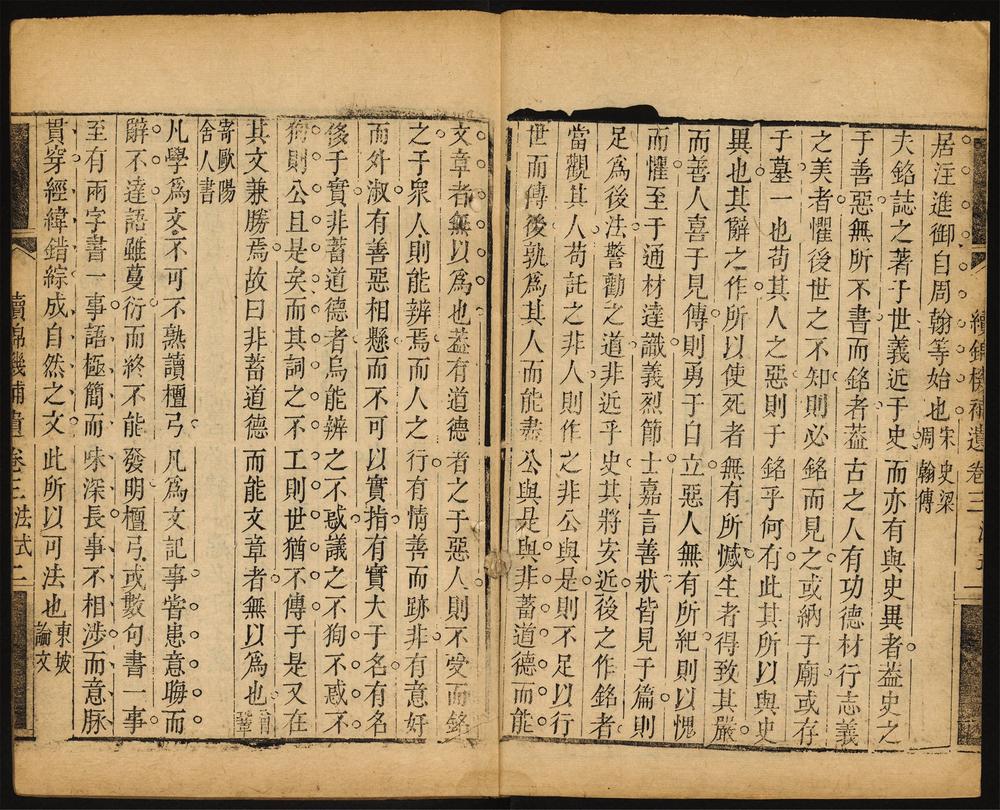 續錦機補遺卷三
居注進御自周翰等始也宋史梁周翰傳
夫銘誌之著于世義近于史而亦有與史異者葢史之
于善惡無所不書而銘者葢古之人有功德材行志義
之美者懼後世之不知則必銘而見之或納于廟或存
于墓一也苟其人之惡則于銘乎何有此其所以與史
異也其辭之作所以使死者無有所憾生者得致其嚴
而善人喜于見傳則勇于自立惡人無有所紀則以愧
而懼至于通材達識義烈節士嘉言善狀皆見于篇則
足爲後法警勸之道非近乎史其將安近後之作銘者
當觀其人苟託之非人則作之非公與是則不足以行
世而傳後孰爲其人而能盡公與是與非蓄道德而能
文章者無以爲也葢有道德者之于惡人則不受而銘
之于衆人則能辨焉而人之行有情善而跡非有意奸
而外淑有善惡相懸而不可以實指有實大于名有名
侈于實非蓄道德者烏能辨之不惑議之不狥不惑不
狥則公且是矣而其詞之不工則世猶不傳于是又在
其文兼勝焉故曰非蓄道德而能文章者無以爲也曾鞏
寄歐陽舍人書
凡學爲文不可不熟讀檀弓凡爲文記事嘗患意晦而
辭不達語雖蔓衍而終不能發明檀弓或數句書一事
至有兩字書一事語極簡而味深長事不相涉而意脉
貫穿經緯錯綜成自然之文此所以可法也東坡論文
續錦機補遺卷三法式二